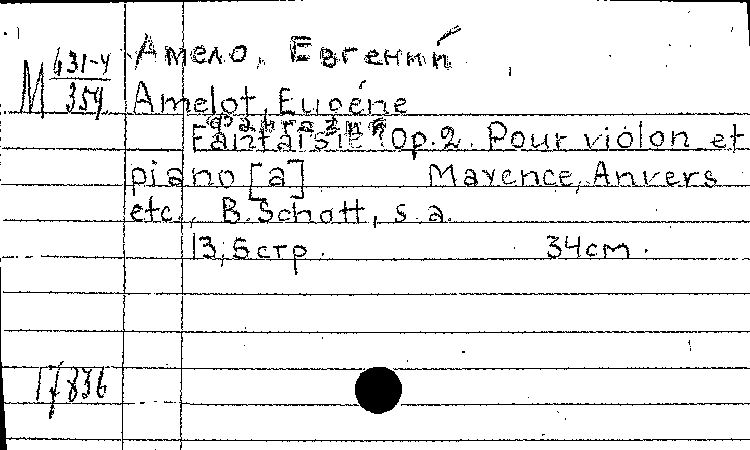 Амело, Евгений
М 631-4
354
Amelot, Eugéne
Fantaisie Op. 2. Pour violon et
piano [a] Mayence, Anvers
etc., B. Schott, s. a.
13, 5 стр. 34 cm.
17836